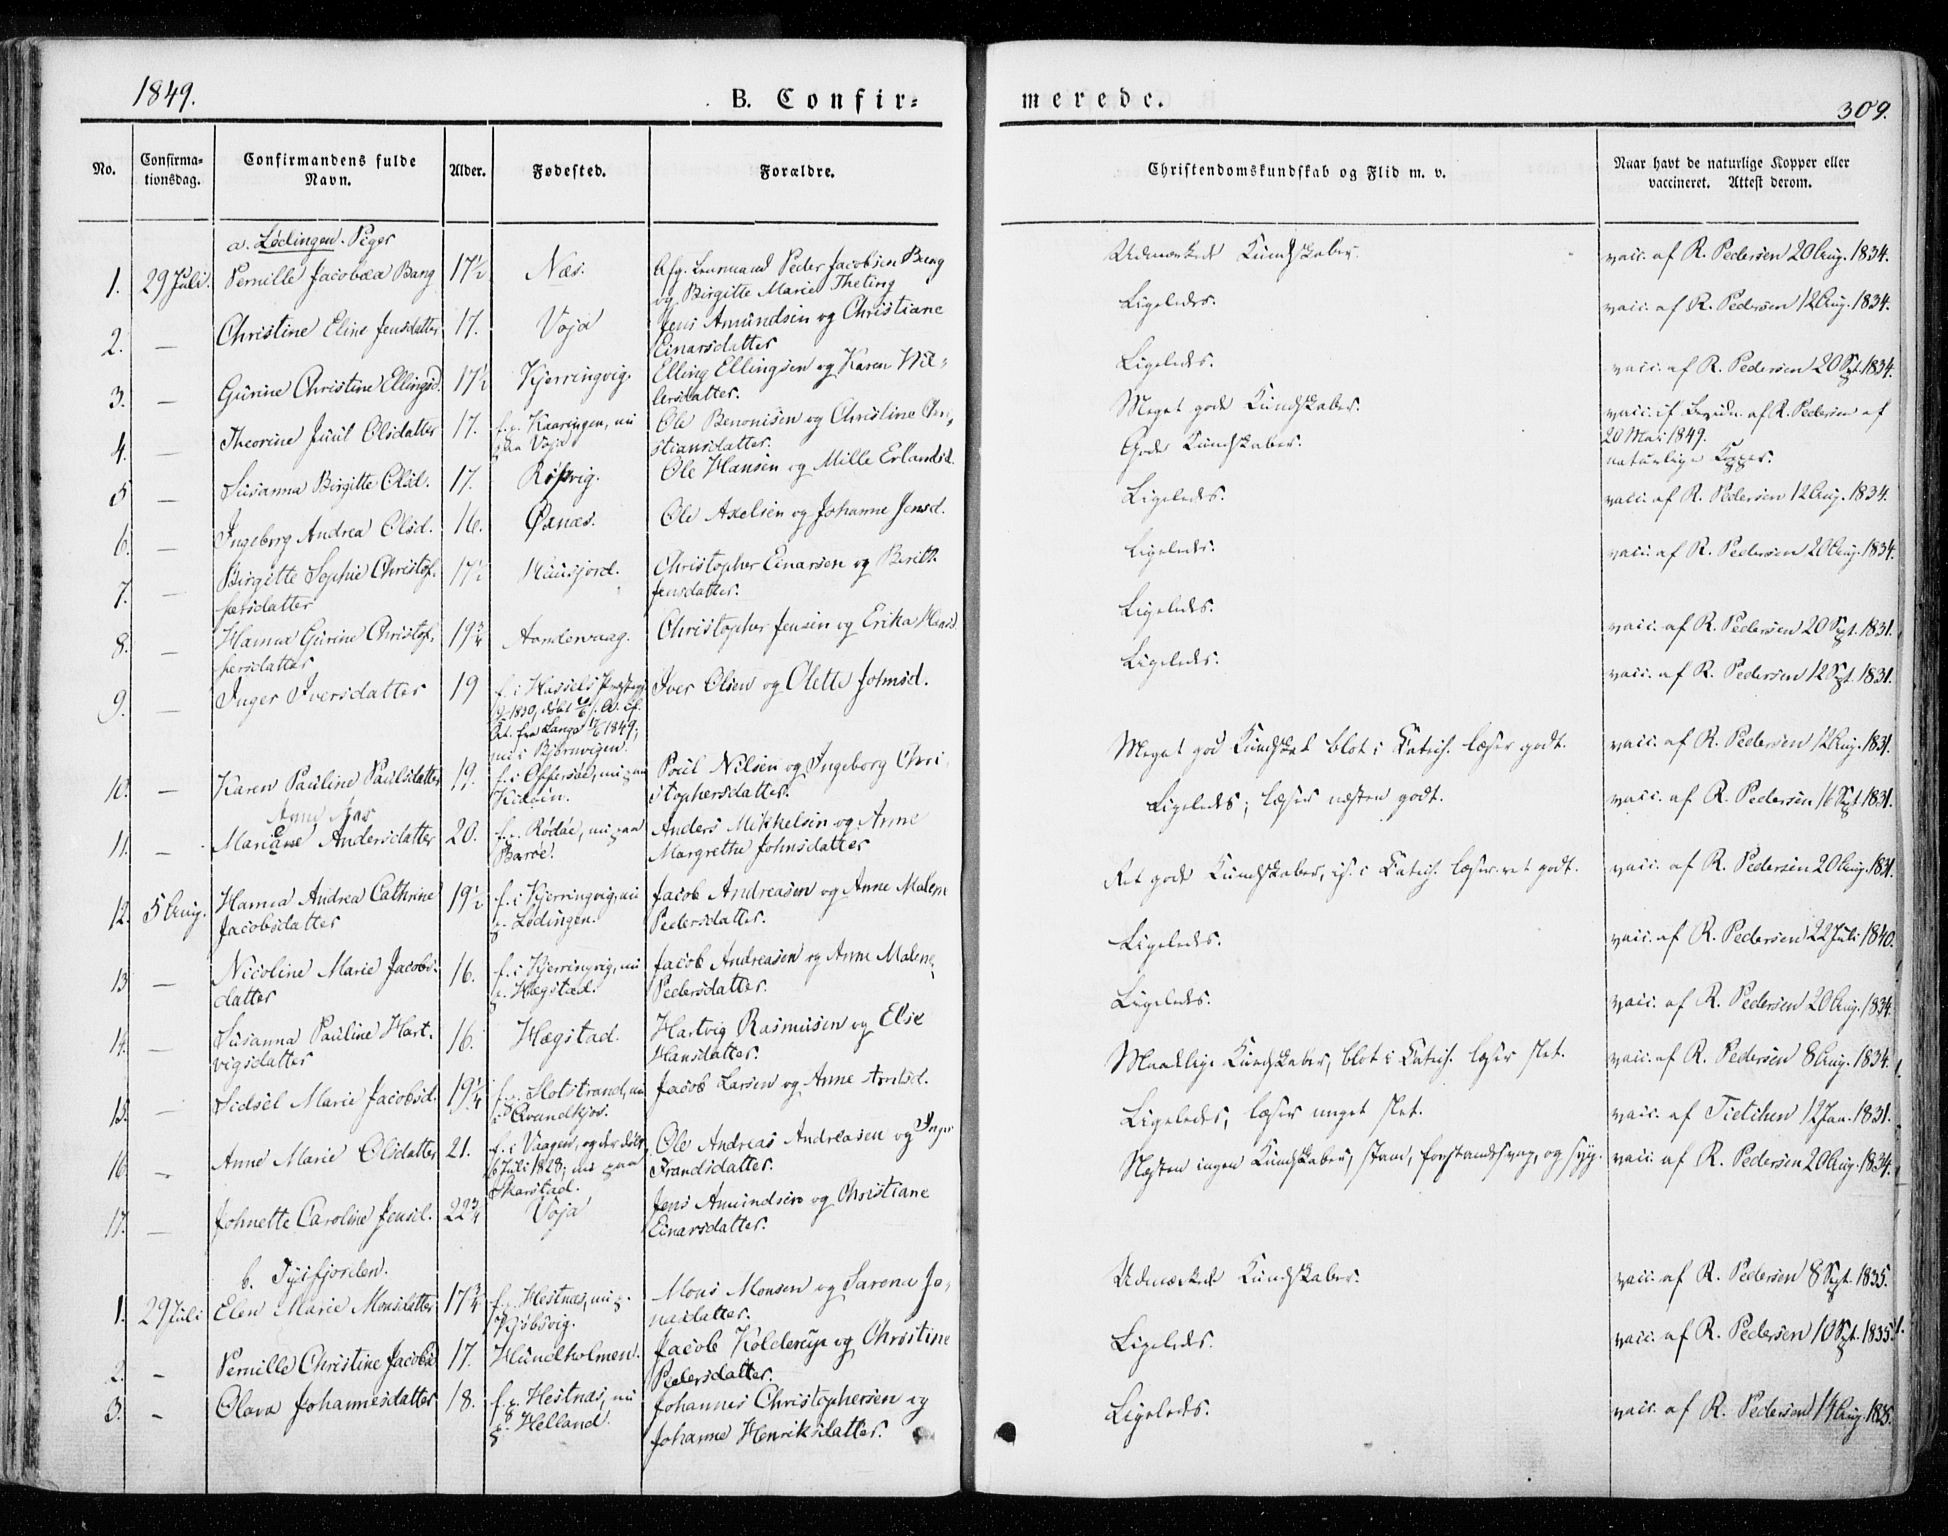 1849.
B. Confir=
merede.
309.
No.
Confirma-
tionsdag.
Confirmandens fulde
Navn.
Alder.
Fødested.
Forældre.
Christendomskundskab og Flid m. v.
Naar havt de naturlige Kopper eller
vaccineret. Attest derom.
a. Lødingen. Piger
1. 29 Juli. Pernille Jacobæa Bang 17½ Næs. Afg. Lensmand Peder Jacobsen Bang
og Birgitte Marie Theting
Udmærkede Kundskaber. vacc. af R. Pedersen 20 Aug. 1834.
2. — Christine Eline Jensdatter 17. Vojå Jens Amundsen og Christiane
Einarsdatter
Ligeledes. vacc. af R. Pedersen 12 Aug. 1834.
3. — Gurine Christine Ellingsd. 17½ Kjerringvig. Elling Ellingsen og Karen Nil-
lersdatter.
Ligeledes. vacc. af R. Pedersen 20 Sept. 1834.
4. — Theorine Juul Olsdatter 17. f. p. Kaaringen, nu
paa Vojå
Ole Benonisen og Christine Chri-
stiansdatter.
Meget gode Kundskaber. vacc. if. af R. Pedersen af
20 Mai 1849.
5 — Susanna Birgitte Olsd. 17. Røsvig. Ole Hansen og Mille Erlandsd.
Gode Kundskaber. naturlige Kopper.
6. — Ingeborg Andrea Olsd. 16. Øxnæs. Ole Axelsen og Johanne Jensd.
Ligeledes. vacc. af R. Pedersen 12 Aug. 1834.
7. — Birgitte Sophie Christof-
fersdatter
17½ Huusjord. Christopher Einarsen og Berith
Jensdatter.
Ligeledes. vacc. af R. Pedersen 20 Aug. 1834.
8. — Hanna Gurine Christof-
fersdatter
19¾ Aandervaag. Christopher Jensen og Erika Hansd.
Ligeledes. vacc. af R. Pedersen 20 Sept. 1831.
9. — Inger Iversdatter 19 f. i Hassels Præsteg.
1830, døbt
fra Langø 1849;
nu i Bjørnvigen.
Iver Olsen og Olette Johnsd.
Ligeledes. vacc. af R. Pedersen 12 Sept. 1831.
10. — Karen Pauline Paulsdatter 19. f. i Offersøe, nu paa
Poul Nilsen og Ingeborg Chri-
stophersdatter.
Meget god Kundskab blot i Katech. læser godt. vacc. af R. Pedersen 12 Aug. 1831.
Anne
11. — Mariane Andersdatter 20. f. p. Rødøe, nu paa
Barøe.
Anders Mikkelsen og Anne
Margrethe Johnsdatter
Ligeledes; læser næsten godt. vacc. af R. Pedersen 16 Sept. 1831.
12. 5 Aug. Hanna Andrea Cathrine
Jacobsdatter
19½ f. i Kjerringvig, nu
p. Lødingen.
Jacob Andreasen og Anne Malene
Pedersdatter.
Ret gode Kundskaber, i Katech. læser ret godt. vacc. af R. Pedersen 20 Aug. 1831.
13 — Nicoline Marie Jacobs-
datter
16. f. i Kjerringvig, nu
p. Hægstad.
Jacob Andreasen og Anne Malene
Pedersdatter.
Ligeledes. vacc. af R. Pedersen 22 Juli 1840.
14. — Susanna Pauline Hart-
vigsdatter
16. Hægstad. Hartvig Rasmusen og Else
Hansdatter.
Ligeledes. vacc. af R. Pedersen 20 Aug. 1834.
15. — Sidsel Marie Jacobsd. 19¼ f. p. Slotstrand, nu
i Qvandkjos.
Jacob Larsen og Anne Arntsd.
Maadelige Kundskaber, blot i Katech. læser slet. vacc. af R. Pedersen 8 Aug. 1834.
16. — Anne Marie Olsdatter 21. f. i Vaagen, og der døbt
6 Juli 1828; nu paa
Skarstad.
Ole Andreas Andreasen og Inger
Trandsdatter.
Ligeledes, læser meget slet. vacc. af Tietchen 12 Jan. 1831.
17. — Johnette Caroline Jensd. 22¾ Vojå Jens Amundsen og Christiane
Einarsdatter.
Næsten ingen Kundskaber, stam, forstandssvag, og syg. vacc. af R. Pedersen 20 Aug. 1834.
b. Tysfjorden.
1. 29 Juli Elen Marie Monsdatter 17¾ f. p. Hestnæs, nu p.
Kjøbsvig.
Mons Monsen og Sarena Jo-
nasdatter.
Udmærkede Kundskaber. vacc. af R. Pedersen 8 Sept. 1835.
2. - Pernille Christine Jacobsd 17. Hundholmen. Jacob Kolderup og Christine
Pedersdatter.
Ligeledes. vacc. af R. Pedersen 10 Sept. 1835.
3. - Olava Johannesdatter 18. f. p. Hestnæs, nu
p. Helland.
Johannes Christophersen og
Johanne Henriksdatter.
Ligeledes. vacc. af R. Pedersen 14 Aug. 1835.